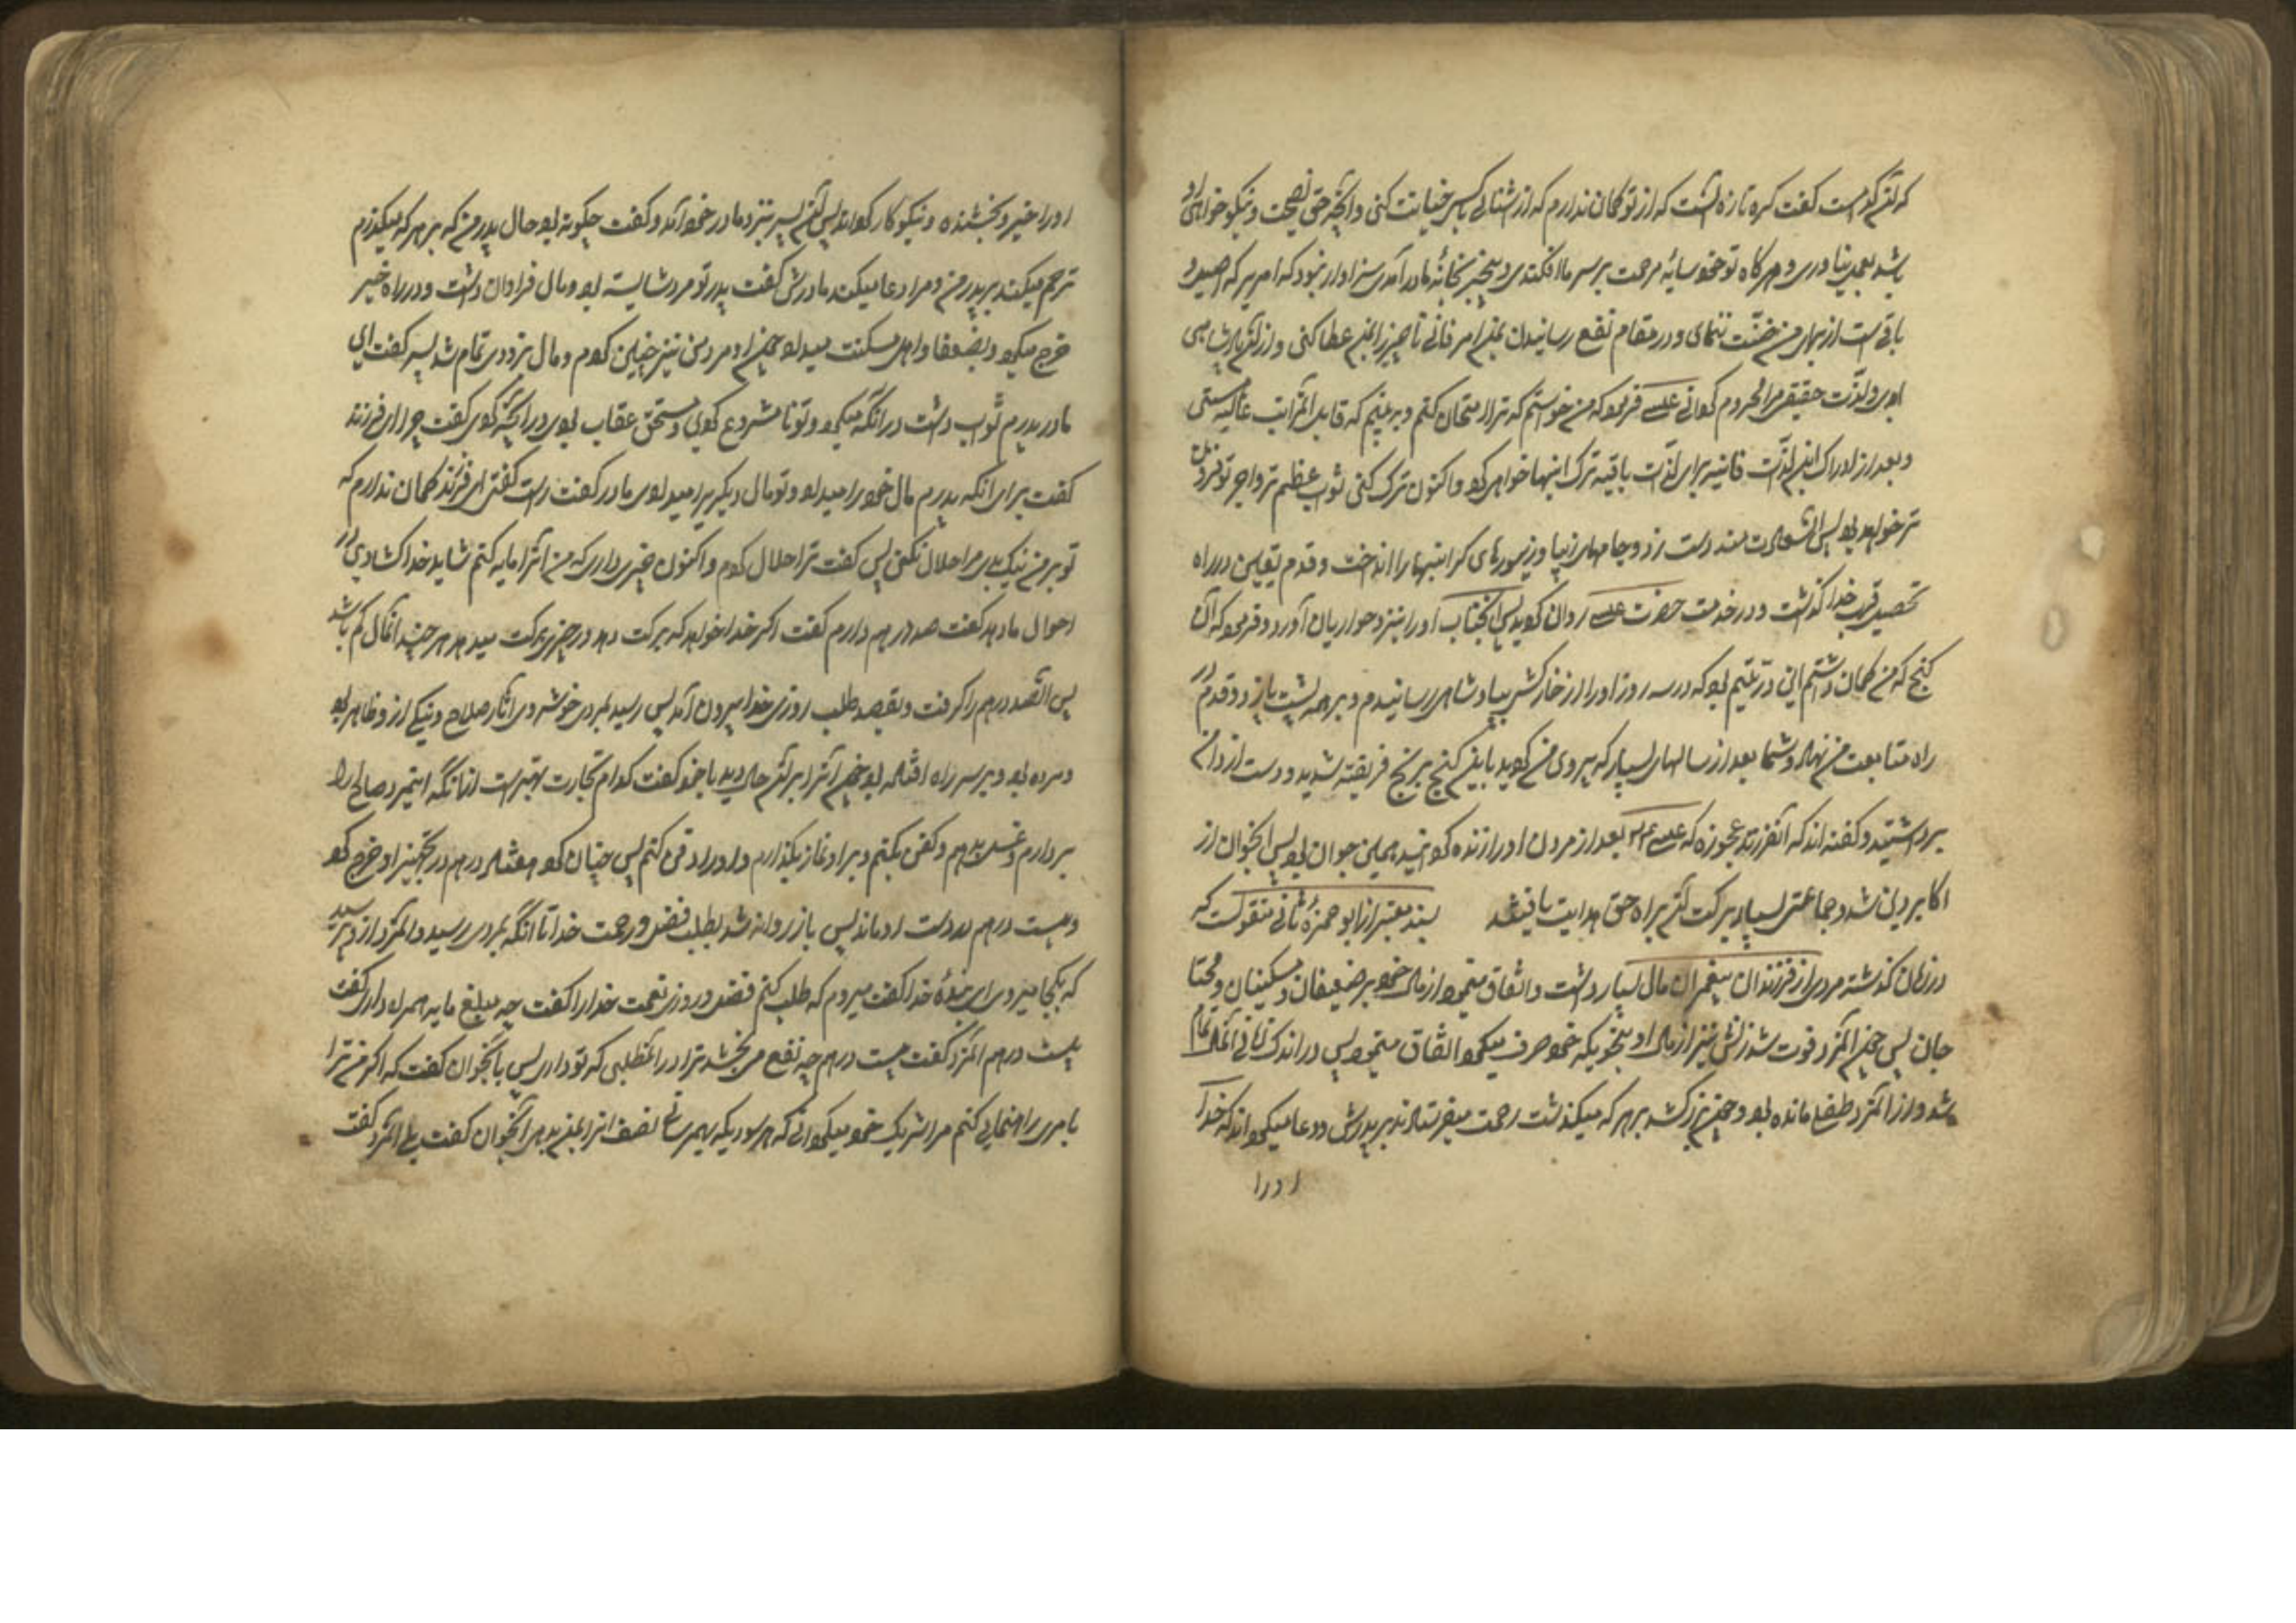 که آن کدام است گفت گره تازه آنست که از تو گمان ندارم که از آشنائی با کسی خیانت کنی و آنچه حق نصیحت و نیکو خواهی او
باشد بعمل نیاوری و هرگاه تو خود سایه مرحمت بر سر ما افکندی و بیخبر بخانه ما در آمدی سزاوار نبود که امری که اصیل و
باقی است از برای من ضنت نمائی و در مقام نفع رسانیدن بمن امر فانی ناچیز را بمن عطا کنی و از آن پادشاهی
ابدی و لذت حقیقی مرا محروم گردانی عیسی فرمود که من خواستم که ترا امتحان کنم و ببینم که قابل آن مراتب عالیه هستی
و بعد از ادراک این لذات فانیه برای لذات باقیه ترک اینها خواهی کرد و اکنون ترک کنی ثواب عظیم تر و اجر تو فزون
تر خواهد بود پس آن سعادتمند دست زد و جامهای زیبا و زیورهای گرانبها را انداخت و قدم یقین در راه
تحصیل قرب خدا گذاشت و در خدمت حضرت عیسی روان گردید پس آنجناب او را بنزد حواریان آورد و فرمود که آن
گنج که من گمان داشتم این در یتیم بود که در سه روز او را از خارکشی بپادشاهی رسانیدم و بر همه پشت پا زد و قدم در
راه متابعت من نهاد و شما بعد از سالهای بسیار که پیروی من کردید باین گنج برنج فریفته شدید و دست از دامن
برداشتید و گفته اند که آن فرزند عجوزه که عیسی بعد از مردن او را زنده گردانید همین جوان بود پس آنجوان از
اکابر دین شد و جماعتی بسیار ببرکت آن براه حق هدایت یافتند بسند معتبر از ابو حمزه ثمالی منقولست که
در زمان گذشته مردی از فرزندان پیغمبران مال بسیار داشت و انفاق مینمود از مال خود بر ضعیفان و مسکینان و محتا
جان پس چون آنمرد فوت شد زنش نیز از مال او بنحویکه خود صرف میکرد انفاق مینمود پس در اندک زمانی آنمال تمام
شد و از آنمرد طفلی مانده بود و چون بزرگ شد بهر که میگذشت رحمت میفرستادند بر پدرش و دعا میکردند که خدا
او را
او را خیر و بخشنده و نیکوکار گرداند پس آن پسر بنزد مادر خود آمد و گفت چگونه بود حال پدر من که بر هر که میگذرم
ترحم میکند بر پدر من و مرا دعا میکند مادرش گفت پدر تو مرد شایسته بود و مال فراوان داشت و در راه خیر
خرج میکرد و بضعفا و اهل مسکنت میداد چون او مرد من نیز چنین کردم و مال بزودی تمام شد پسر گفت ای
مادر پدرم ثواب داشت در آنکه میکرد و تو نا مشروع کردی و مستحق عقاب بودی در آنچه کردی گفت چرا ای فرزند
گفت برای آنکه پدرم مال خود را میداد و تو مال دیگری را میدادی مادر گفت راست گفتی ای فرزند گمان ندارم که
تو بر من تنگ گیری مرا حلال نکنی پس گفت ترا حلال کردم و اکنون چیزی داری که من آنرا مایه کنم شاید خدا گشادی در
احوال ما دهد گفت صد درهم دارم گفت اگر خدا خواهد که برکت دهد در چیزی برکت میدهد هر چند آنمال کم باشد
پس آن صد درهم را گرفت و بقصد طلب روزی خدا بیرون آمد پس رسید بمردی خوشروی آثار صلاح و نیکی از او ظاهر بود
و مرده بود و بر سر راه افتاده بود چون آنرا بر آن حال دید با خود گفت کدام تجارت بهتر است از آنکه این مرد صالح را
بردارم و غسل دهم و کفن بکنم و بر او نماز بگذارم و او را دفن کنم پس چنان کرد هشتاد درهم در تجهیز او خرج کرد
و بیست درهم در دست او ماند پس باز روانه شد بطلب فضل و رحمت خدا تا آنکه بمردی رسید و آنمرد از او پرسید
که بکجا میروی ای بنده خدا گفت میروم که طلب کنم فضل و روزی نعمت خدا را گفت چه مبلغ مایه همراه داری گفت
بیست درهم آنمرد گفت بیست درهم چه نفع می بخشد ترا در آن طلبی که تو داری پس بآنجوان گفت که اگر من ترا
بامری راهنمایی کنم مرا شریک خود میگردانی که هر سودیکه بهم رسانی نصف آنرا بمن بدهی آنجوان گفت بلی آنمرد گفت